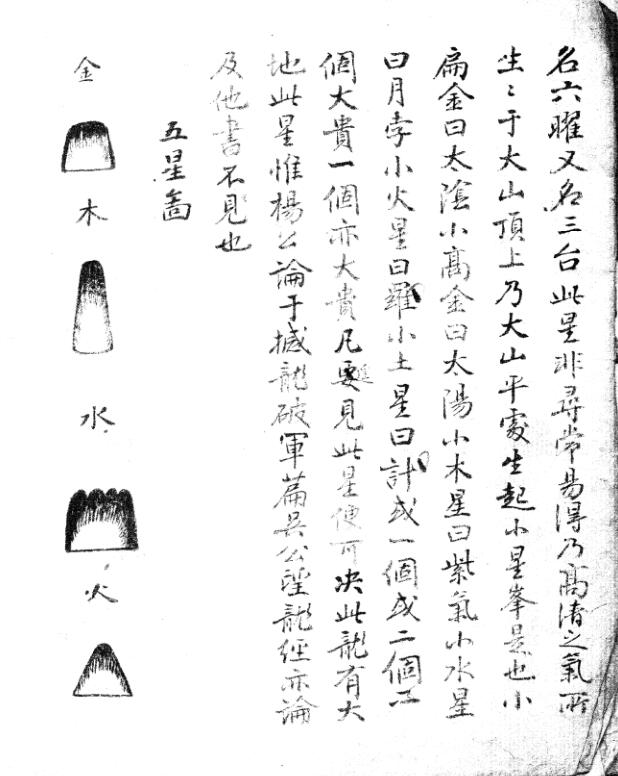 名六曜又名三台此星非尋常易得乃高清之氣所
生〻于大山頂上乃大山平處生起小星峯是也小
扁金曰太陰小高金曰太陽小木星曰紫氣小水星
曰月孛小火星曰羅小土星曰計或一個或二個
個大貴一個亦大貴凡要見此星便可决此龍有大
地此星惟楊公論于撼龍破軍篇吳公望龍經亦論
及他書不見也
五星啚
金
木
水
火